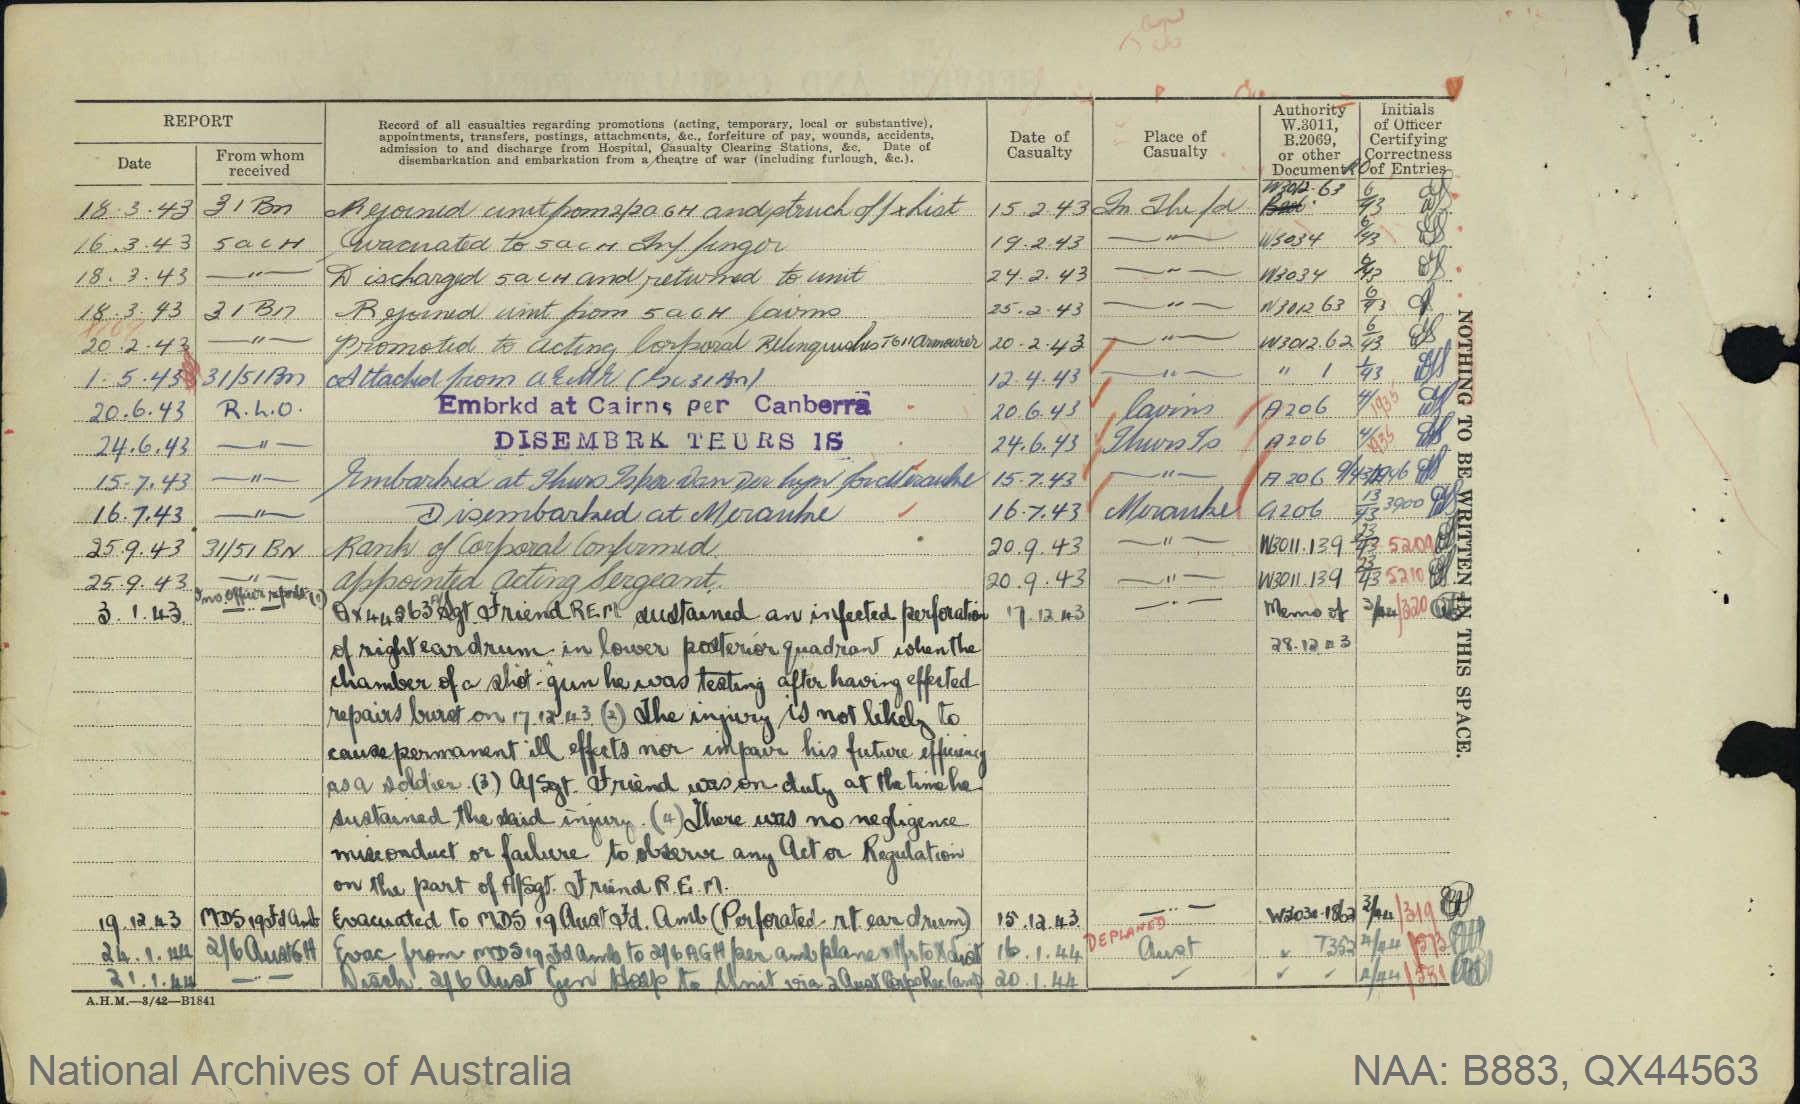 REPORT
Date
From whom received
Record of all casualties regarding promotions (acting, temporary, local or substantive),
appointments, transfers, postings, attachments, &c., forfeiture of pay, wounds, accidents,
admission to and discharge from Hospital, Casualty Clearing Stations, &c. Date of
disembarkation and embarkation from a theatre of war (including furlough, &c.).
Date of Casualty
Place of Casualty
Authority W.3011, B.2069, or other Document
Initials of Officer Certifying Correctness of Entries
18.3.43 31 Bn Rejoined unit from 2/2 AGH and struck off x list 15.2.43 In The fd W3012.63 6/43
16.3.43 5 ACH Evacuated to 5 ACH Inf finger 19.2.43 —"— W3034 6/43
18.3.43 —"— Discharged 5 ACH and returned to unit 24.2.43 —"— W3034 6/43
18.3.43 31 Bn Rejoined unit from 5 ACH Cairns 25.2.43 —"— W3012 63 6/43
20.2.43 —"— Promoted to Acting Corporal Relinquishes Armourer 20.2.43 —"— W3012.62 6/43
1.5.43 31/51 Bn Attached from AEME ( 31 Bn) 12.4.43 —"— " 1 1/43
20.6.43 R.L.O. Embrkd at Cairns per Canberra 20.6.43 Cairns A206 4/1935
24.6.43 —"— DISEMBRK THURS IS 24.6.43 Thurs Is A206 4/1935
15.7.43 —"— Embarked at Thurs Is per Van Der Lyn for Merauke 15.7.43 —"— A206 9/43
16.7.43 —"— Disembarked at Merauke 16.7.43 Merauke A206 13/43 3900
25.9.43 31/51 BN Rank of Corporal Confirmed. 20.9.43 —"— W3011.139 23/43 5209
25.9.43 —"— Appointed Acting Sergeant. 20.9.43 —"— W3011.139 23/43 5210
3.1.43. (1) QX44563 A/Sgt Friend R.E.M sustained an infected perforation 17.12.43 —"— Memo of 2/44/320
of right ear drum in lower posterior quadrant when the 28.12.43
chamber of a shot-gun he was testing after having effected
repairs burst on 17.12.43 (2) The injury is not likely to
cause permanent ill effects nor impair his future efficiency
as a soldier. (3) A/Sgt. Friend was on duty at the time he
sustained the said injury. (4) There was no negligence
misconduct or failure to observe any Act or Regulation
on the part of A/Sgt. Friend R.E.M.
19.12.43 MDS 19 Fd Amb Evacuated to MDS 19 Aust Fd. Amb (Perforated rt ear drum) 15.12.43 —"— 2/44/319
DEPLANED
24.1.44 2/6 Aust GH Evac from MDS 19 Fd Amb to 2/6 AGH per amb plane 16.1.44 Aust T352 4/44
21.1.44 —"— Disch. 2/6 Aust Gen Hosp to Unit via 2 Aust Corps Rec Camp 20.1.44 4/44/581
A.H.M.—3/42—B1841
NOTHING TO BE WRITTEN IN THIS SPACE.
National Archives of Australia
NAA: B883, QX44563